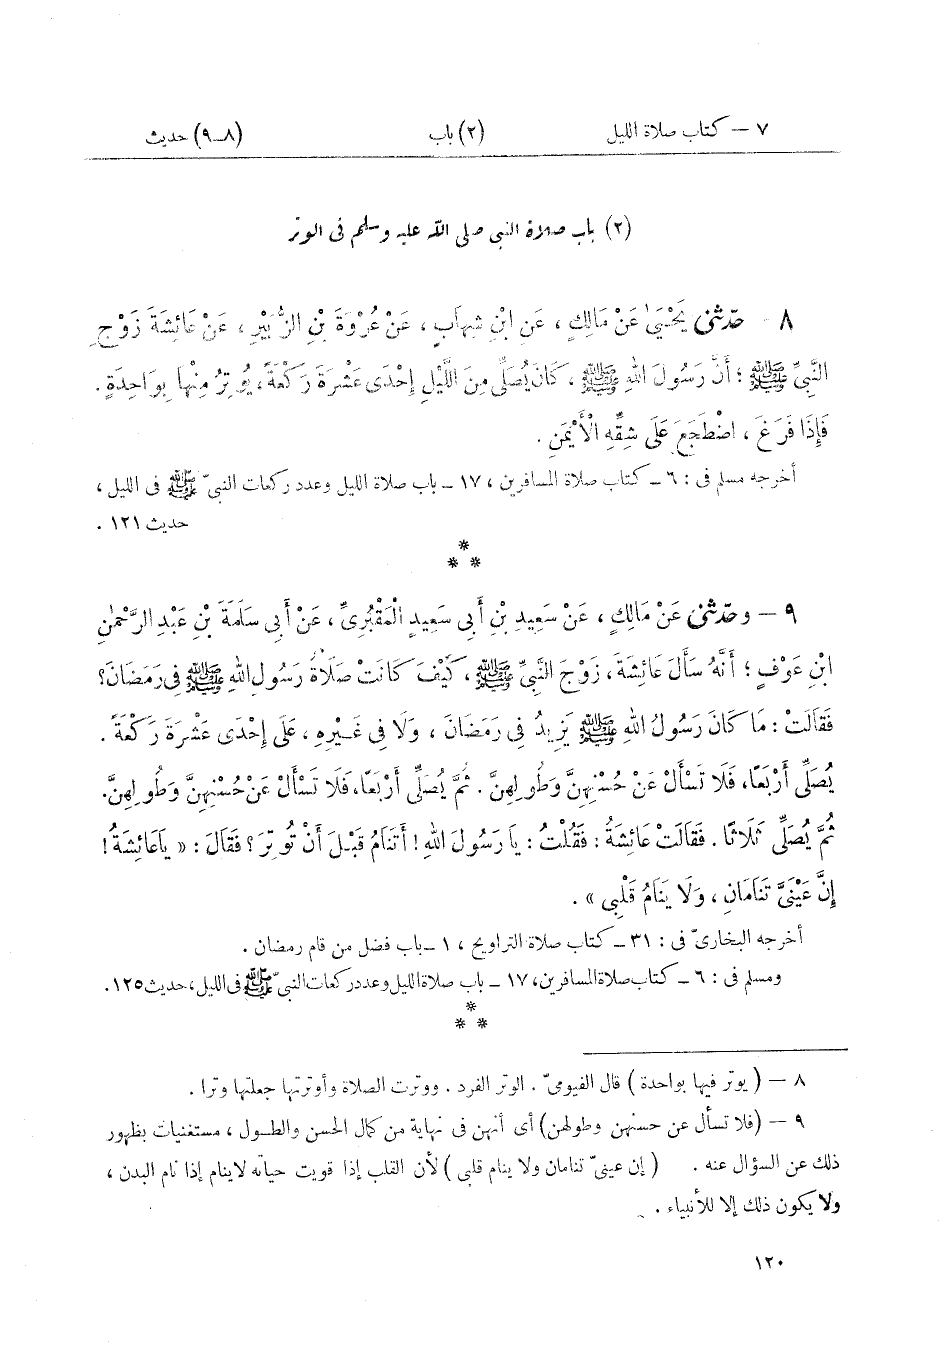 ٧ – كتاب صلاة الليل (٢) باب (٨_٩) حديث
(٢) باب صلاة النبى صلى الله عليه وسلم فى الوتر
٨ – حدّثنى يَحْيَىٰ عَنْ مَالِكٍ ، عَنِ ابْنِ شِهَابٍ ، عَنْ عُرْوَةَ بْنِ الزُّبَيْرِ ، عَنْ عَائِشَةَ زَوْجِ
النَّبِيِّ ﷺ ؛ أَنَّ رَسُولَ اللهِ ﷺ ، كَانَ يُصَلِّى مِنَ اللَّيْلِ إِحْدَى عَشْرَةَ رَكْعَةً ، يُوتِرُ مِنْهَا بِوَاحِدَةٍ .
فَإِذَا فَرَغَ ، اضْطَجَعَ عَلَى شِقِّهِ الْأَيْمَنِ .
أخرجه مسلم فى : ٦ ــ كتاب صلاة المسافرين ، ١٧ ــ باب صلاة الليل وعدد ركعات النبىّ ﷺ فى الليل ،
حديث ١٢١ .
*
* *
٩ – وحدّثنى عَنْ مَالِكٍ ، عَنْ سَعِيدِ بْنِ أَبِي سَعِيدٍ الْمَقْبُرِىِّ ، عَنْ أَبِي سَلَمَةَ بْنِ عَبْدِ الرَّحْمٰنِ
ابْنِ عَوْفٍ ؛ أَنَّهُ سَأَلَ عَائِشَةَ ، زَوْجَ النَّبِيِّ ﷺ ، كَيْفَ كَانَتْ صَلَاةُ رَسُولِ اللهِ ﷺ فِى رَمَضَانَ؟
فَقَالَتْ : مَا كَانَ رَسُولُ اللهِ ﷺ يَزِيدُ فِى رَمَضَانَ ، وَلَا فِى غَيْرِهِ ، عَلَى إِحْدَى عَشْرَةَ رَكْعَةً .
يُصَلِّى أَرْبَعًا، فَلَا تَسْأَلْ عَنْ حُسْنِهِنَّ وَطُولِهِنَّ . ثُمَّ يُصَلِّى أَرْبَعًا، فَلَا تَسْأَلْ عَنْ حُسْنِهِنَّ وَطُولِهِنَّ.
ثُمَّ يُصَلِّى ثَلَاثًا . فَقَالَتْ عَائِشَةُ : فَقُلْتُ : يَا رَسُولَ اللهِ ! أَتَنَامُ قَبْلَ أَنْ تُوتِرَ ؟ فَقَالَ : « يَا عَائِشَةُ !
إِنَّ عَيْنَيَّ تَنَامَانِ ، وَلَا يَنَامُ قَلْبِى » .
أخرجه البخارىّ فى : ٣١ ــ كتاب صلاة التراويح ، ١ ــ باب فضل من قام رمضان .
ومسلم فى : ٦ ــ كتاب صلاة المسافرين، ١٧ ــ باب صلاة الليل وعدد ركعات النبىّ ﷺ فى الليل، حديث ١٢٥.
*
* *
٨ – ( يوتر فيها بواحدة ) قال الفيومىّ . الوتر الفرد . ووترت الصلاة وأوترتها جعلتها وترا .
٩ – (فلا تسأل عن حسنهن وطولهن) أى أنهن فى نهاية من كمال الحسن والطول ، مستغنيات بظهور
ذلك عن السؤال عنه . ( إن عينىّ تنامان ولا ينام قلبى ) لأن القلب إذا قويت حياته لاينام إذا نام البدن ،
ولا يكون ذلك إلا للأنبياء .
١٢٠